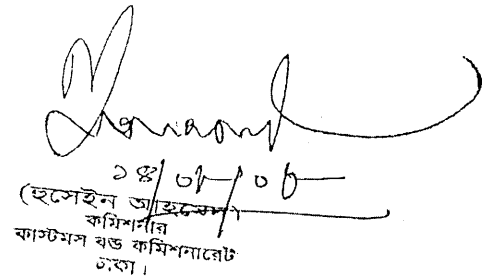 ১৪/০৮/০৮
(হুসেইন আহমেদ)
কমিশনার
কাস্টমস বন্ড কমিশনারেট
ঢাকা।